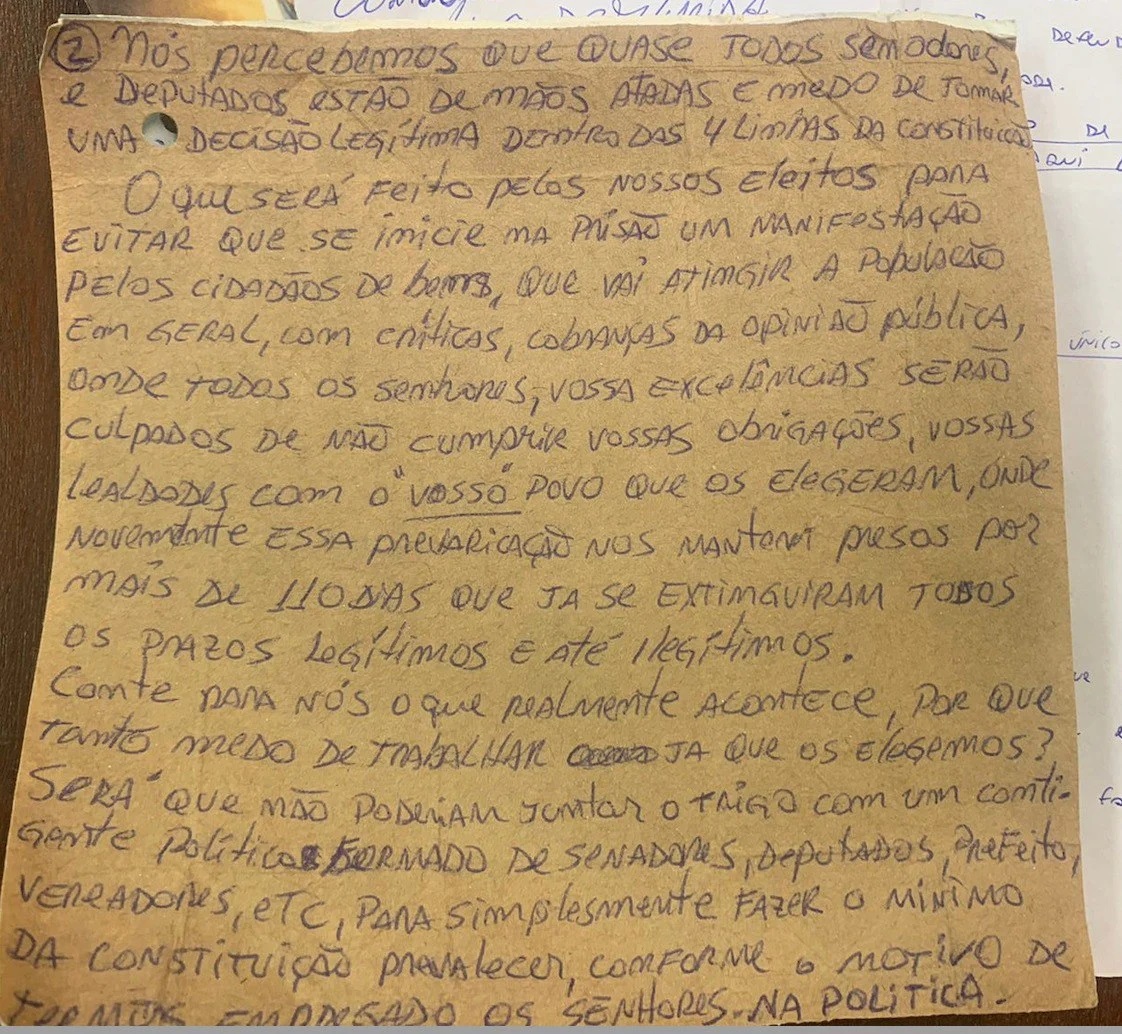 ② Nós percebemos que QUASE TODOS Semadores,
e DEPUTADOS ESTÃO DE MÃOS ATADAS E MEDO DE TOMAR
UMA DECISÃO LEGÍTIMA DEMTRO DAS 4 LIMHAS DA CONSTITUIÇÃO
O que SERÁ FEITO PELOS NOSSOS ELEITOS PARA
EVITAR QUE SE IMICIE MA PRISÃO UM MANIFESTAÇÃO
PELOS CIDADÃOS DE bems, QUE VAI ATIMGIR A POPULAÇÃO
Em GERAL, com CRÍTICAS, COBRANÇAS DA OPINIÃO pública,
ONDE TODOS OS Semhores, VOSSA EXCELÊMCIAS SERÃO
CULPADOS DE NÃO CUMPRIR VOSSAS ObRIGAÇÕES, VOSSAS
LEALDADES COM O "VOSSO" POVO QUE OS ELEGERAM, ONDE
NOVAMENTE ESSA PREVARICAÇÃO NOS MANTEM PRESOS POR
MAIS DE 110 DIAS QUE JA SE EXTIMGUIRAM TODOS
OS PRAZOS LEGÍTIMOS E ATÉ ILEGÍTIMOS.
Comte PARA NÓS O que REALMENTE ACONTECE, POR QUE
TANTO MEDO DE TRABALHAR JA QUE OS ELEGEMOS?
SERÁ QUE MÃO PODERIAM JUNTAR O TRIGO com um comti-
GENTE POLÍTICO FORMADO DE SENADORES, DEPUTADOS, PREFEITO,
VEREADORES, eTC, PARA Simplesmente FAZER O MÍNIMO
DA CONSTITUIÇÃO PREVALECER, COMFORME O MOTIVO DE
TERMOS EMPREGADO OS SENHORES NA POLÍTICA.
DE
ÚNICO